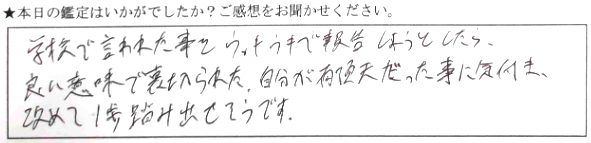 ★本日の鑑定はいかがでしたか？ご感想をお聞かせください。
学校で言われた事をウッキウキで報告しようとしたら、
良い意味で裏切られた。自分が有頂天だった事に気付き、
改めて1歩踏み出せそうです。